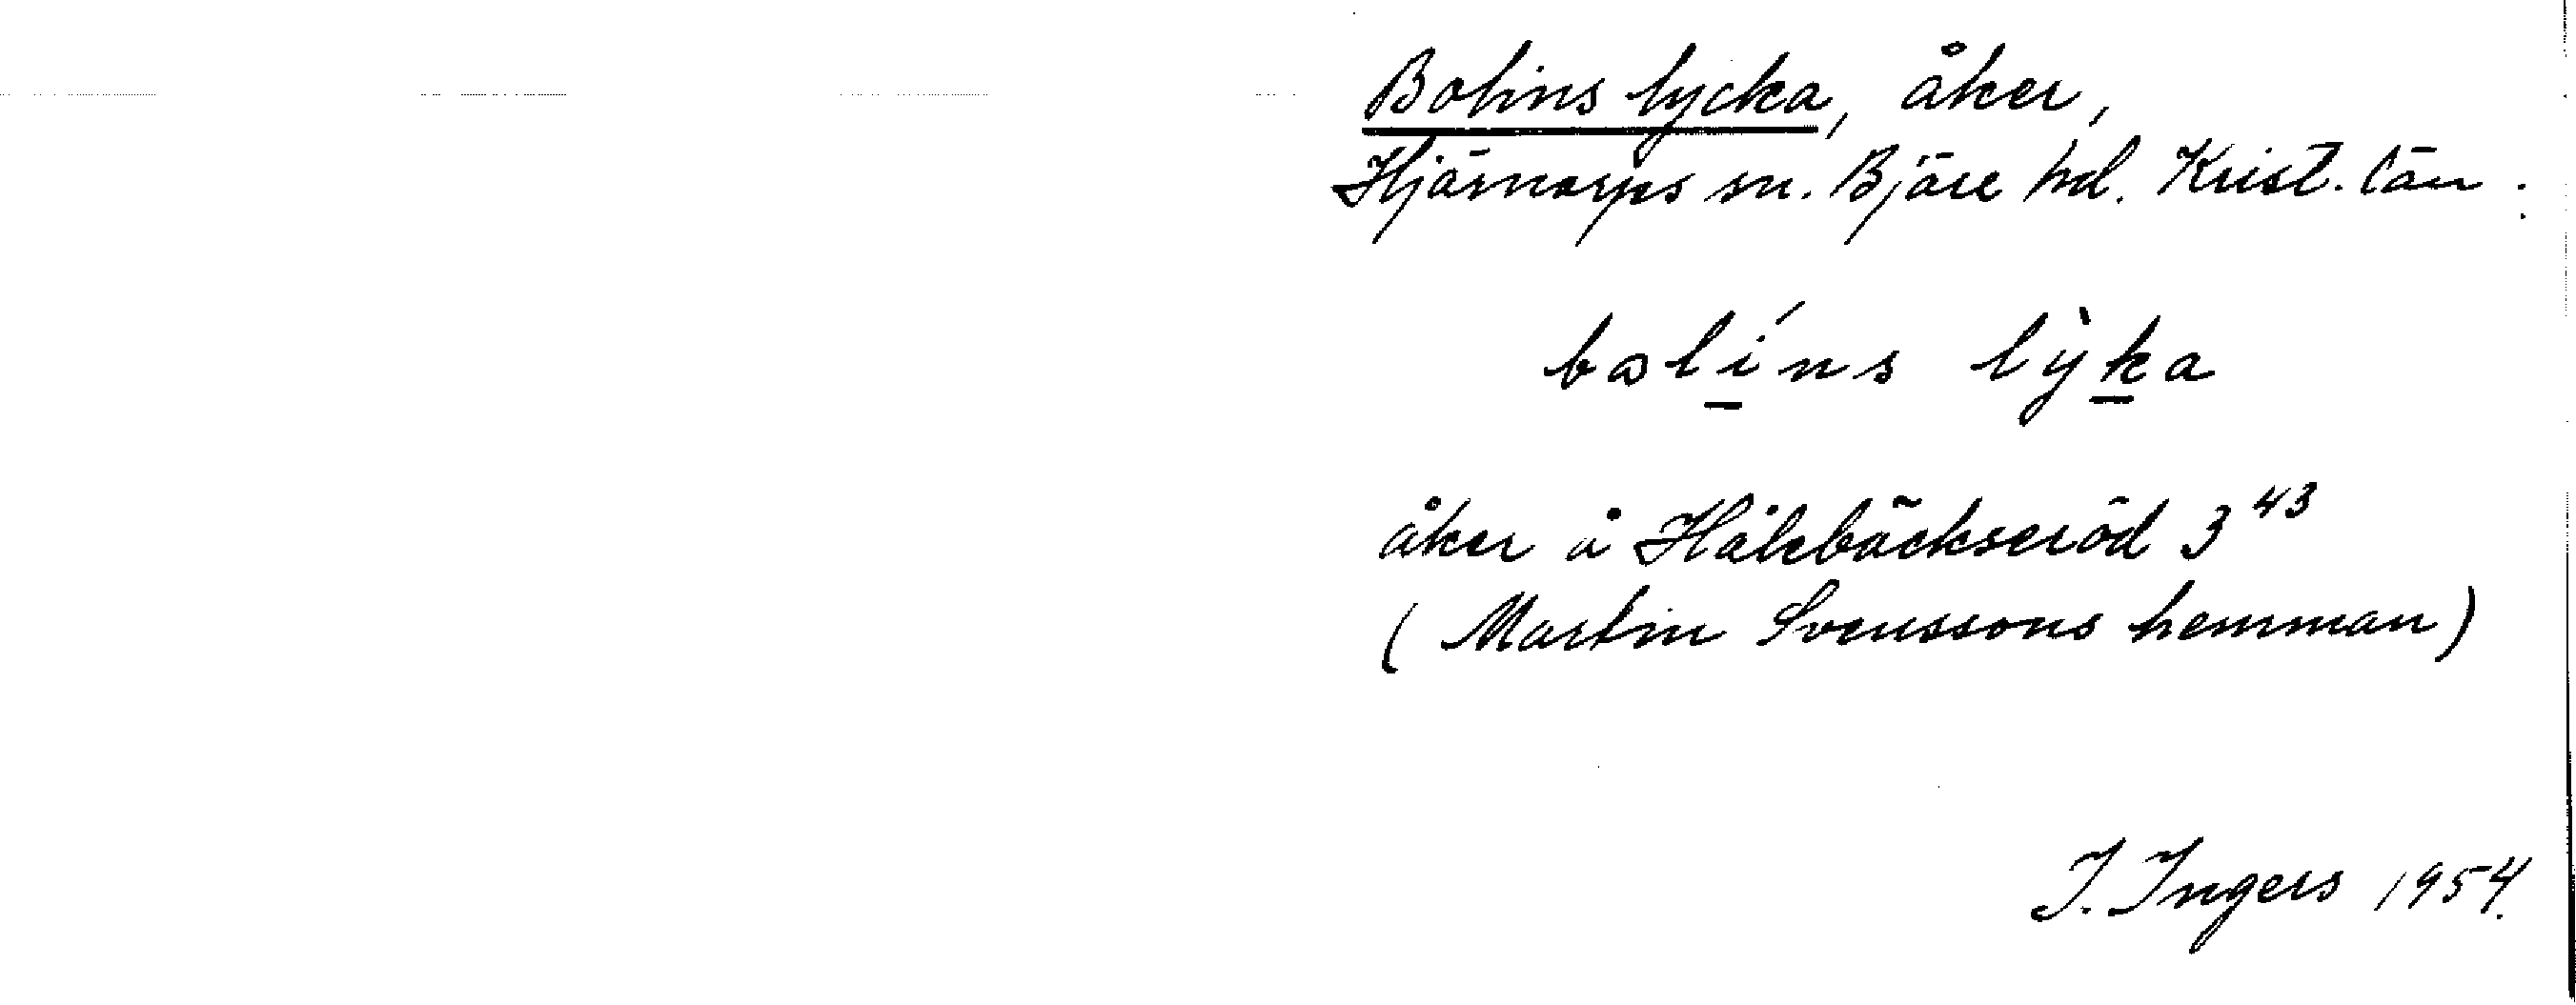 Bolins lycka, åker,
Hjärnarps sn. Bjäre hd. Krist. län.
bolíns lỳka
åker å Hålebäckseröd 3⁴³
(Martin Svenssons hemman)
I. Ingers 1954.